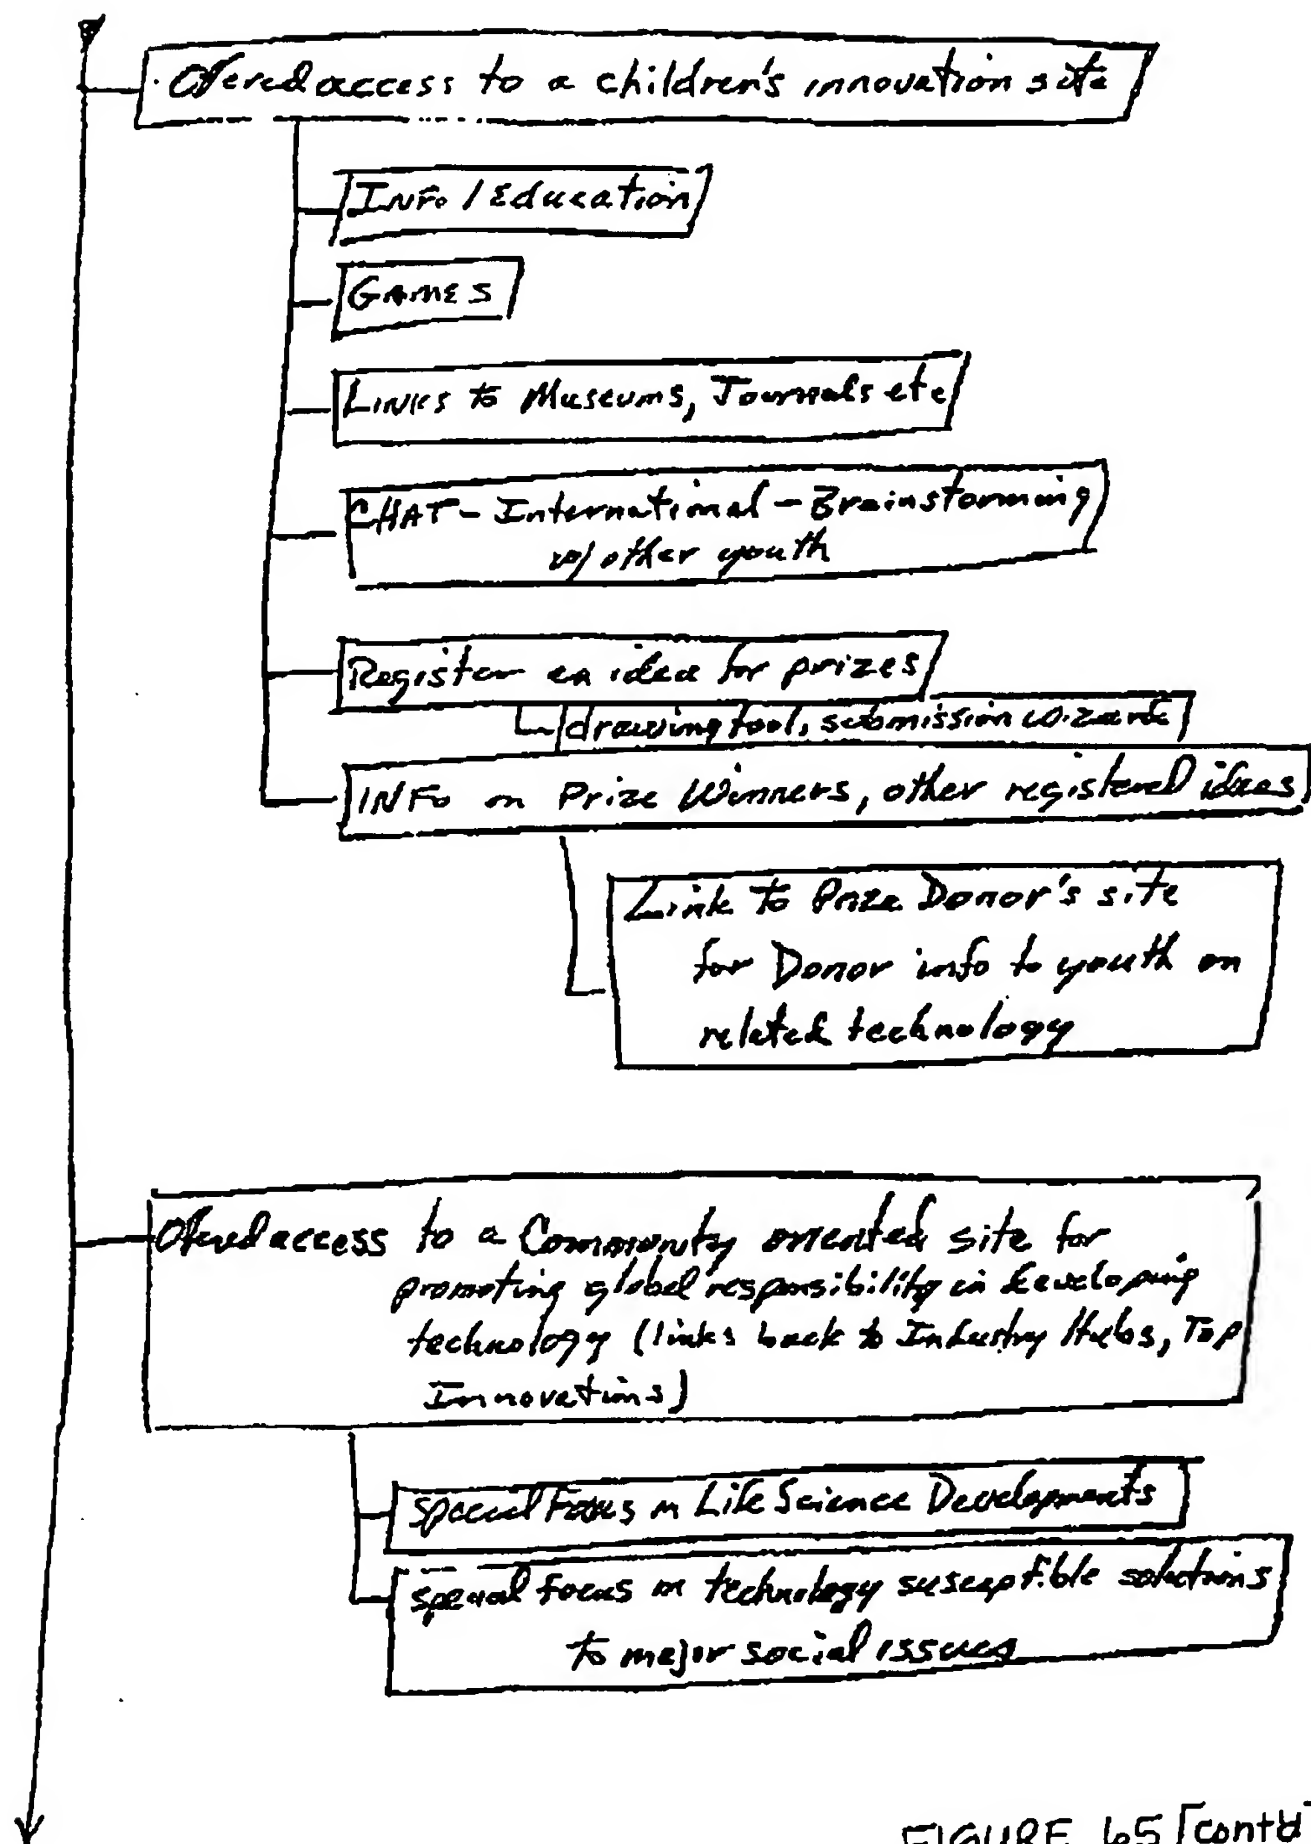 Offered access to a children's innovation site
INFO / Education
GAMES
LINKS to Museums, Journals etc
CHAT - International - Brainstorming
w/ other youth
Register an idea for prizes
drawing tool, submission wizards
INFO on Prize Winners, other registered ideas
Link to Prize Donor's site
for Donor info to youth on
related technology
Offered access to a Community oriented site for
promoting global responsibility in developing
technology (links back to Industry Hubs, Top
Innovations)
special Focus on Life Science Developments
special focus on technology susceptible solutions
to major social issues
FIGURE 65 [cont'd]